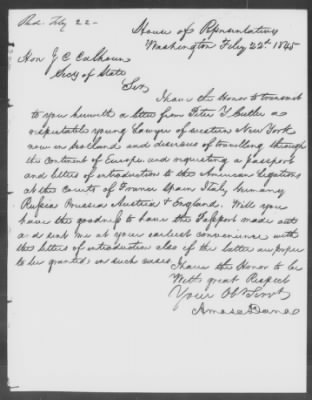 Recd. Feby 22 -
House of Representatives
Washington Feby 22d 1845
Hon J C Calhoun
Secy of State
Sir
I have the Honor to transmit
to you herewith a letter from Peter Y Cutler a
reputable young Lawyer of western New York
now in Scotland and desirous of travelling through
the Continent of Europe and requesting a passport
and letters of introduction to the American Legations
at the Courts of France Spain Italy Germany
Russia Prussia Austria & England. Will you
have the goodness to have the Passport made out
and sent me at your earliest convenience with
the letters of introduction also if the latter are proper
to be granted in such cases.
I have the Honor to be
With great Respect
Your Obt Servt
Amasa Dana